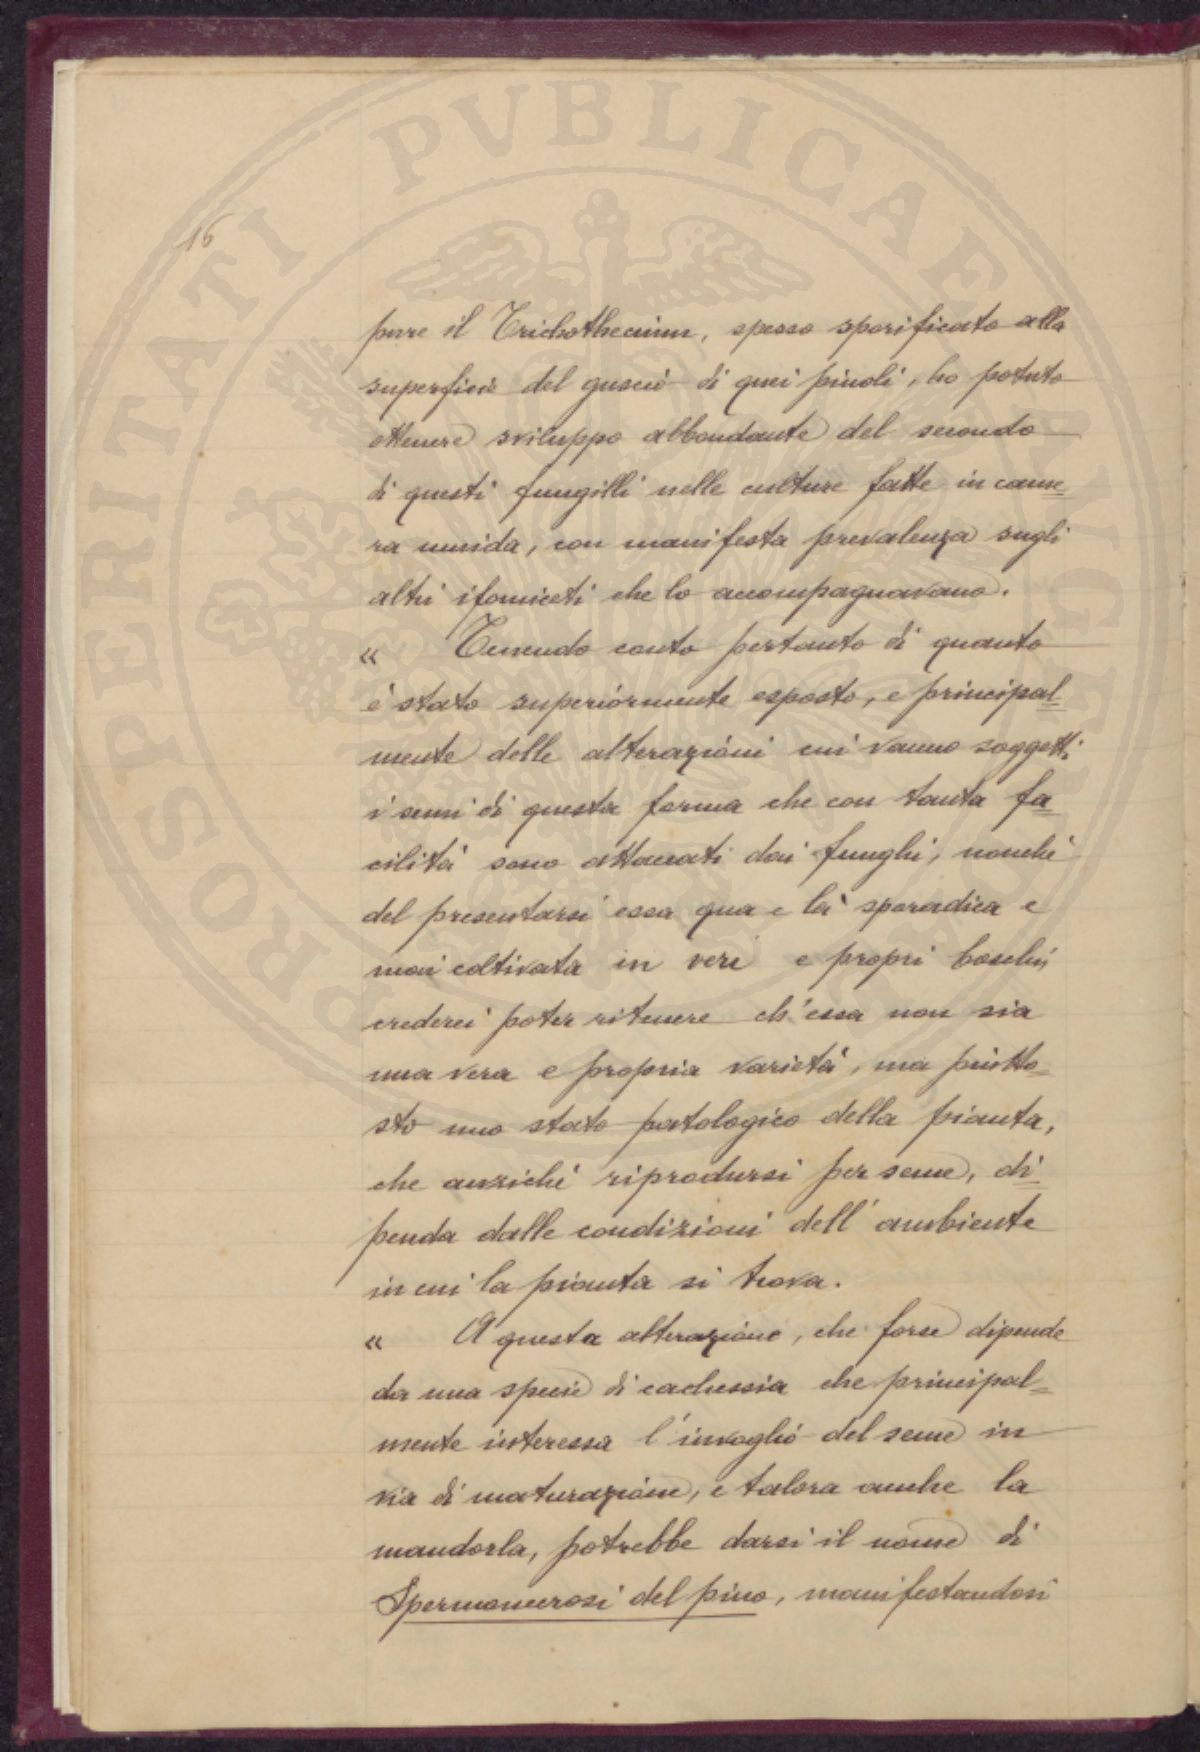 PROSPERITATI PVBLICAE AVGENDAE
16
pure il Trichothecium, spesso sporificato alla
superficie del guscio di quei pinoli, ho potuto
ottenere sviluppo abbondante del secondo
di questi fungilli nelle culture fatte in came=
ra umida, con manifesta prevalenza sugli
altri ifomiceti che lo accompagnavano.
« Tenendo conto pertanto di quanto
è stato superiormente esposto, e principal=
mente delle alterazioni cui vanno soggetti
i semi di questa forma che con tanta fa=
cilità sono attaccati dai funghi, nonchè
del presentarsi essa qua e là sporadica e
mai coltivata in veri e propri boschi,
crederei poter ritenere ch'essa non sia
una vera e propria varietà, ma piutto=
sto uno stato patologico della pianta,
che anzichè riprodursi per seme, di=
penda dalle condizioni dell'ambiente
in cui la pianta si trova.
« A questa alterazione, che forse dipende
da una specie di cachessia che principal=
mente interessa l'invoglio del seme in
via di maturazione, e talora anche la
mandorla, potrebbe darsi il nome di
Spermonecrosi del pino, manifestandosi